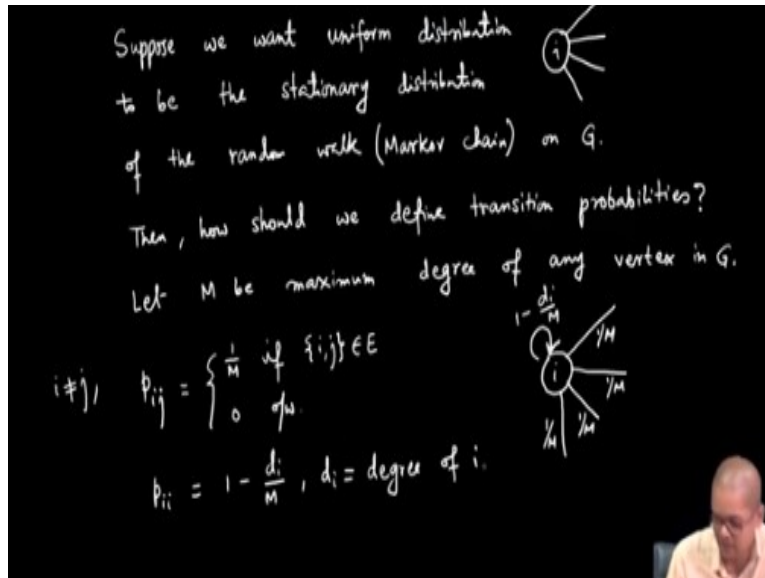 Suppose we want uniform distribution
i
to be the stationary distribution
of the random walk (Markov chain) on G.
Then, how should we define transition probabilities?
Let M be maximum degree of any vertex in G.
1 - di/M
i≠j, pij = { 1/M if {i,j} ∈ E
0 o/w.
i
1/M
1/M
1/M
1/M
pii = 1 - di/M, di = degree of i.